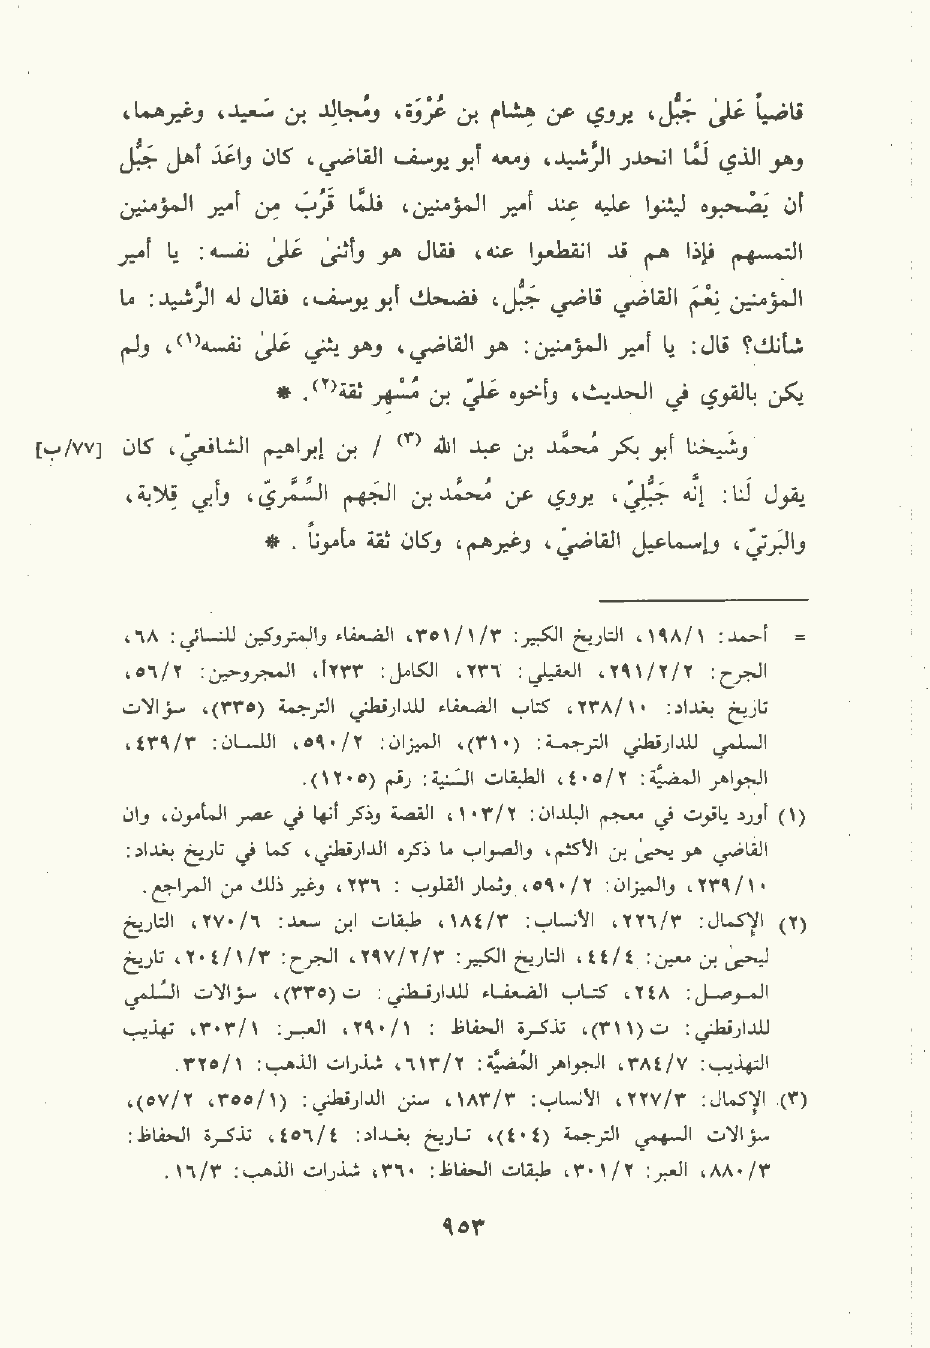 قاضياً عَلىٰ جَبُّل، يروي عن هِشام بن عُرْوَة، ومُجالِد بن سَعيد، وغيرهما،
وهو الذي لَمَّا انحدر الرَّشيد، ومعه أبو يوسف القاضي، كان واعَدَ أهل جَبُّل
أن يَصْحبوه ليثنوا عليه عند أمير المؤمنين، فلمَّا قَرُبَ من أمير المؤمنين
التمسهم فإذا هم قد انقطعوا عنه، فقال هو وأثنىٰ عَلىٰ نفسه: يا أمير
المؤمنين نِعْمَ القاضي قاضي جَبُّل، فضحك أبو يوسف، فقال له الرَّشيد: ما
شأنك؟ قال: يا أمير المؤمنين: هو القاضي، وهو يثني عَلىٰ نفسه(١)، ولم
يكن بالقوي في الحديث، وأخوه عَليّ بن مُسْهِر ثقة(٢). *
وشَيخنا أبو بكر مُحمَّد بن عبد الله (٣) / بن إبراهيم الشافعيّ، كان [٧٧/ب]
يقول لَنا: إنَّه جَبُّليّ، يروي عن مُحمَّد بن الجَهم السِّمَّريّ، وأبي قِلابة،
والبَرتيّ، وإسماعيل القاضيّ، وغيرهم، وكان ثقة مأموناً. *
= أحمد: ١٩٨/١، التاريخ الكبير: ٣٥١/١/٣، الضعفاء والمتروكين للنسائي: ٦٨،
الجرح: ٢٩١/٢/٢، العقيلي: ٢٣٦، الكامل: ٢٣٣أ، المجروحين: ٥٦/٢،
تاريخ بغداد: ٢٣٨/١٠، كتاب الضعفاء للدارقطني الترجمة (٣٣٥)، سؤالات
السلمي للدارقطني الترجمة: (٣١٠)، الميزان: ٥٩٠/٢، اللسان: ٤٣٩/٣،
الجواهر المضيَّة: ٤٠٥/٢، الطبقات السَّنية: رقم (١٢٠٥).
(١) أورد ياقوت في معجم البلدان: ١٠٣/٢، القصة وذكر أنها في عصر المأمون، وان
القاضي هو يحيىٰ بن الأكثم، والصواب ما ذكره الدارقطني، كما في تاريخ بغداد:
٢٣٩/١٠، والميزان: ٥٩٠/٢، وثمار القلوب : ٢٣٦، وغير ذلك من المراجع.
(٢) الإكمال: ٢٢٦/٣، الأنساب: ١٨٤/٣، طبقات ابن سعد: ٢٧٠/٦، التاريخ
ليحيىٰ بن معين: ٤٤/٤، التاريخ الكبير: ٢٩٧/٢/٣، الجرح: ٢٠٤/١/٣، تاريخ
الموصل: ٢٤٨، كتاب الضعفاء للدارقطني: ت (٣٣٥)، سؤالات السُّلمي
للدارقطني: ت (٣١١)، تذكرة الحفاظ : ٢٩٠/١، العبر: ٣٠٣/١، تهذيب
التهذيب: ٣٨٤/٧، الجواهر المُضيَّة: ٦١٣/٢، شذرات الذهب: ٣٢٥/١.
(٣) الإكمال: ٢٢٧/٣، الأنساب: ١٨٣/٣، سنن الدارقطني: (٣٥٥/١، ٥٧/٢)،
سؤالات السهمي الترجمة (٤٠٤)، تاريخ بغداد: ٤٥٦/٤، تذكرة الحفاظ:
٨٨٠/٣، العبر: ٣٠١/٢، طبقات الحفاظ: ٣٦٠، شذرات الذهب: ١٦/٣.
٩٥٣